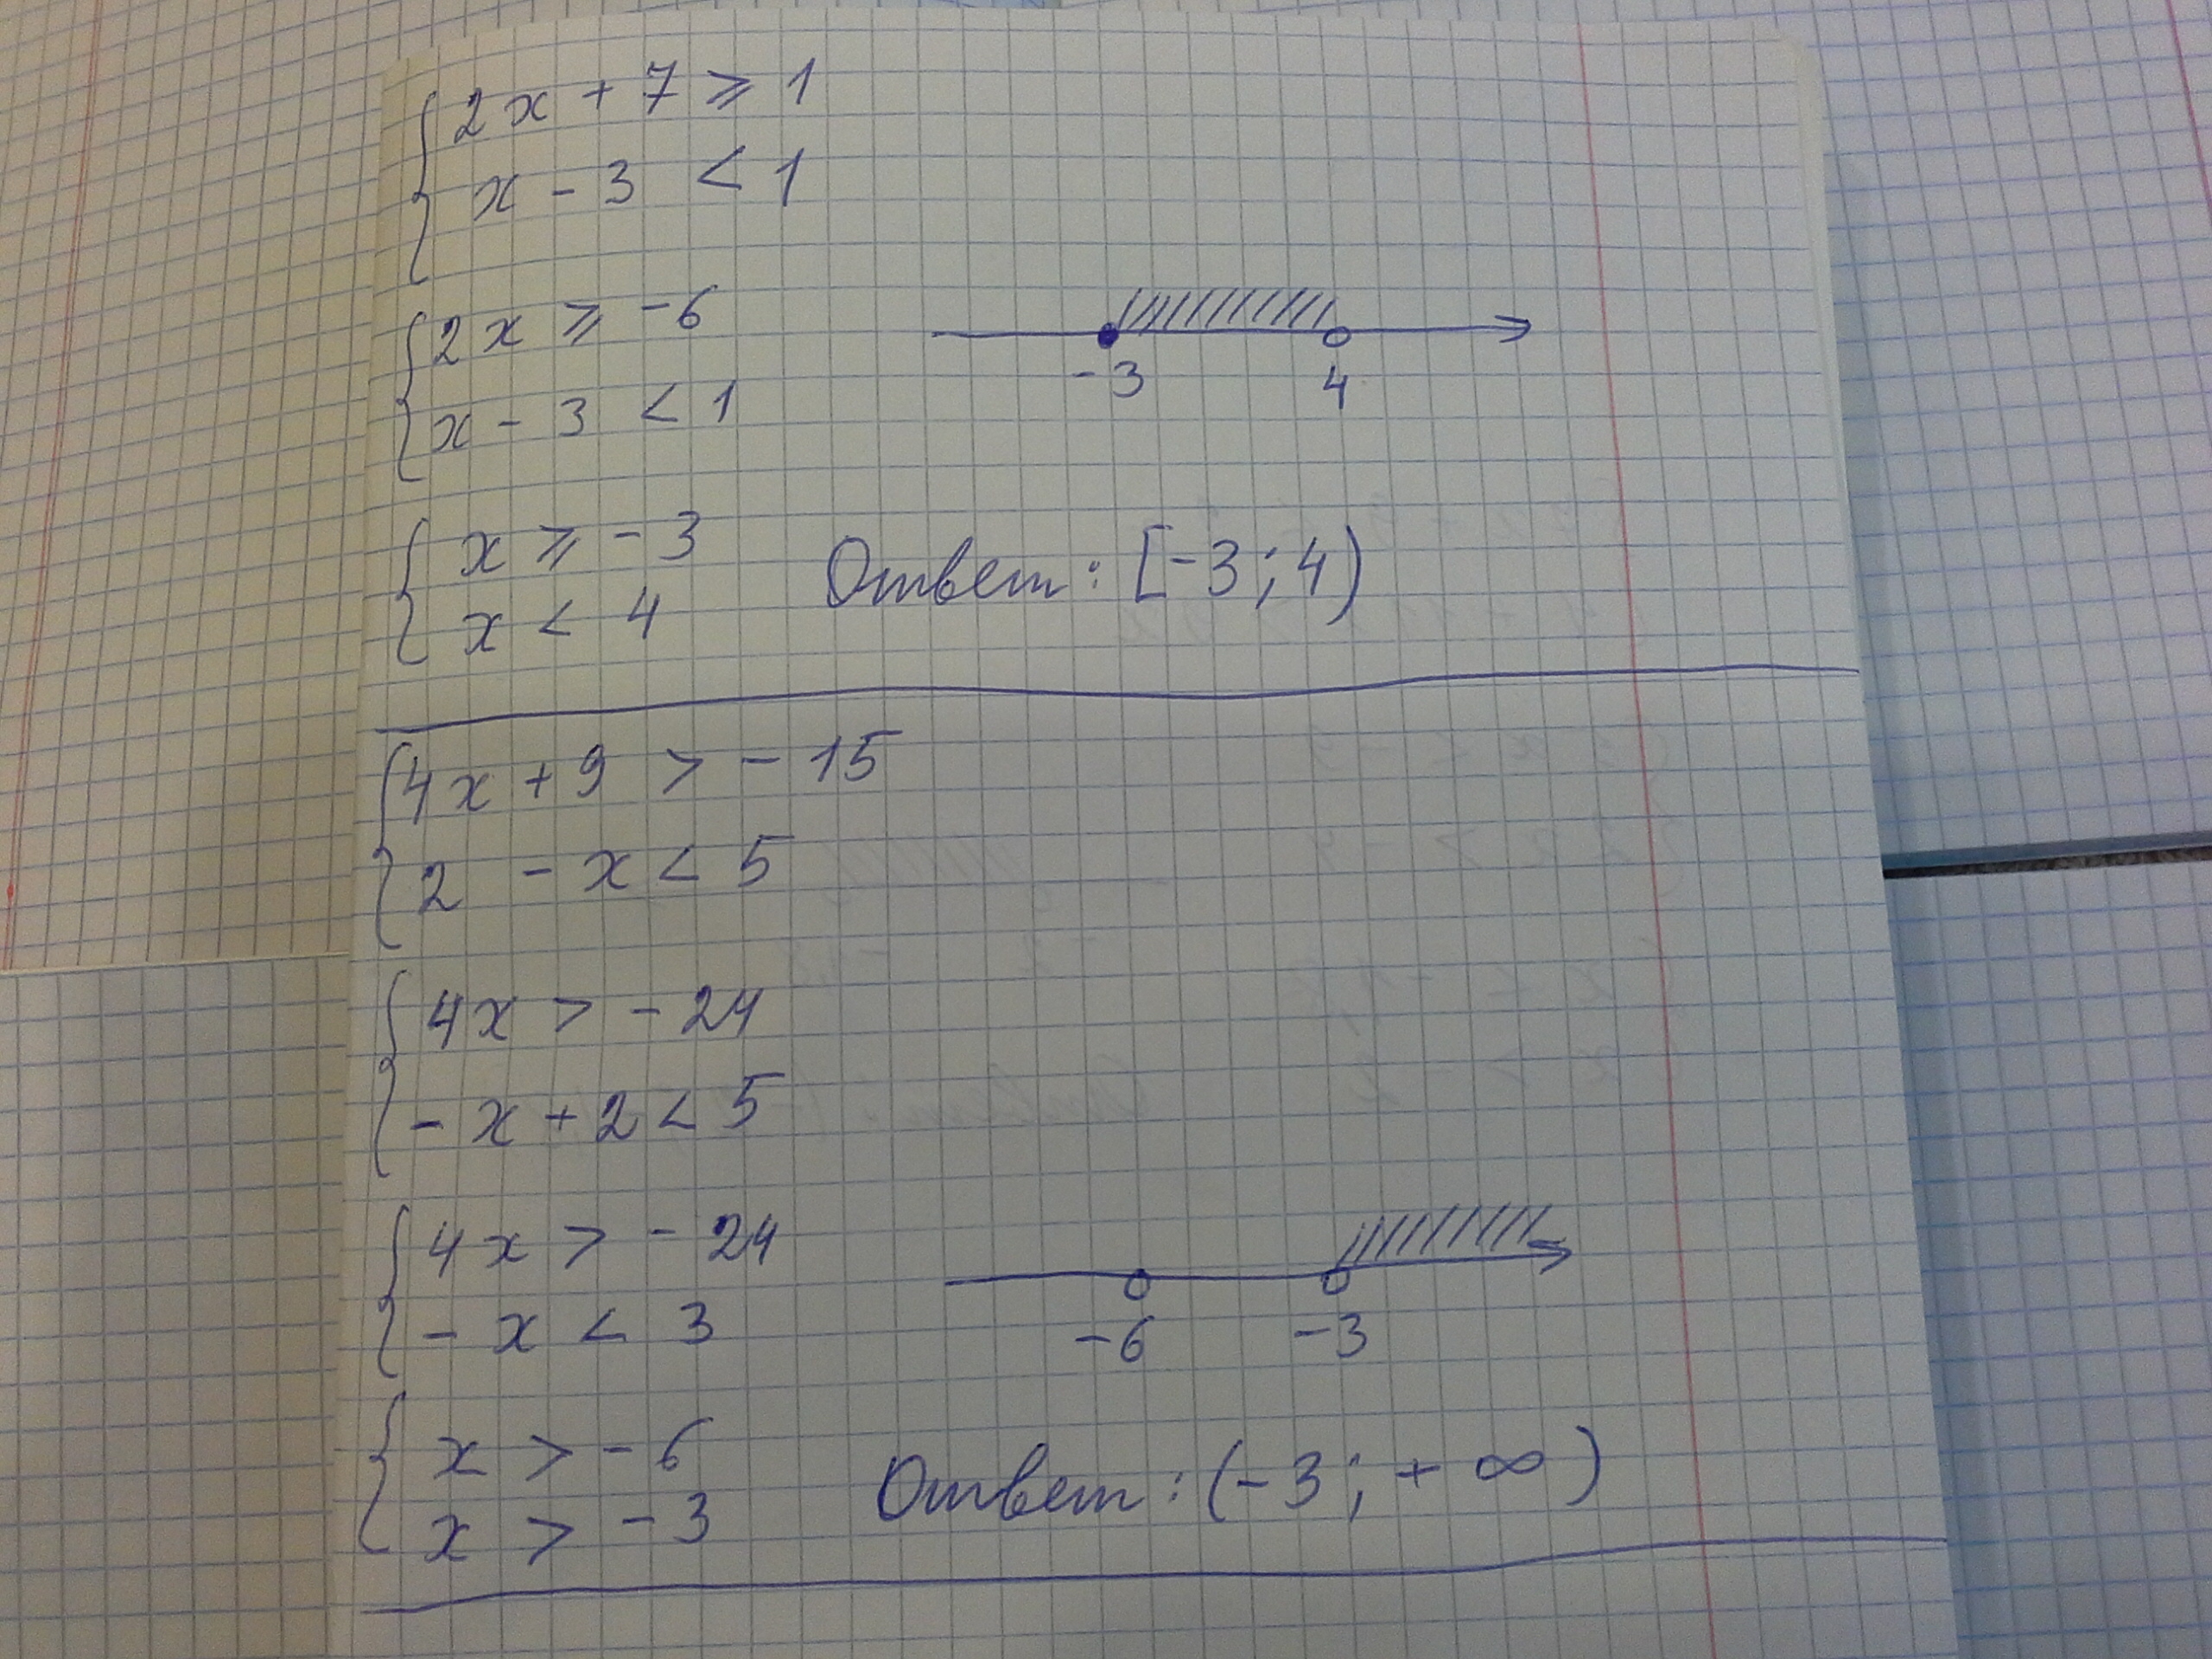 { 2x + 7 ⩾ 1
x - 3 < 1
{ 2x ⩾ -6
x - 3 < 1
-3 4
{ x ⩾ -3
x < 4
Ответ: [-3; 4)
{ 4x + 9 > - 15
2 - x < 5
{ 4x > - 24
- x + 2 < 5
{ 4x > - 24
- x < 3
-6 -3
{ x > - 6
x > - 3
Ответ: (-3; + ∞)